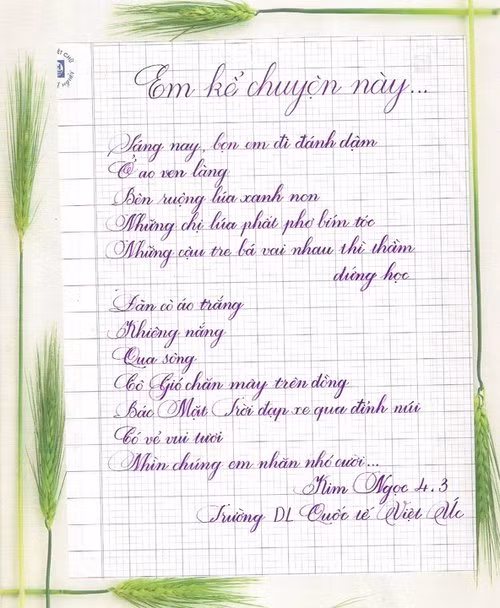 Em kể chuyện này...
Sáng nay, bọn em đi đánh dậm
Ở ao ven làng
Bên ruộng lúa xanh non
Những chị lúa phất phơ bím tóc
Những cậu tre bá vai nhau thì thầm
đứng học
Đàn cò áo trắng
Khiêng nắng
Qua sông
Cô Gió chăn mây trên đồng
Bác Mặt Trời đạp xe qua đỉnh núi
Có vẻ vui tươi
Nhìn chúng em nhăn nhó cười...
Kim Ngọc 4.3
Trường DL Quốc tế Việt Úc